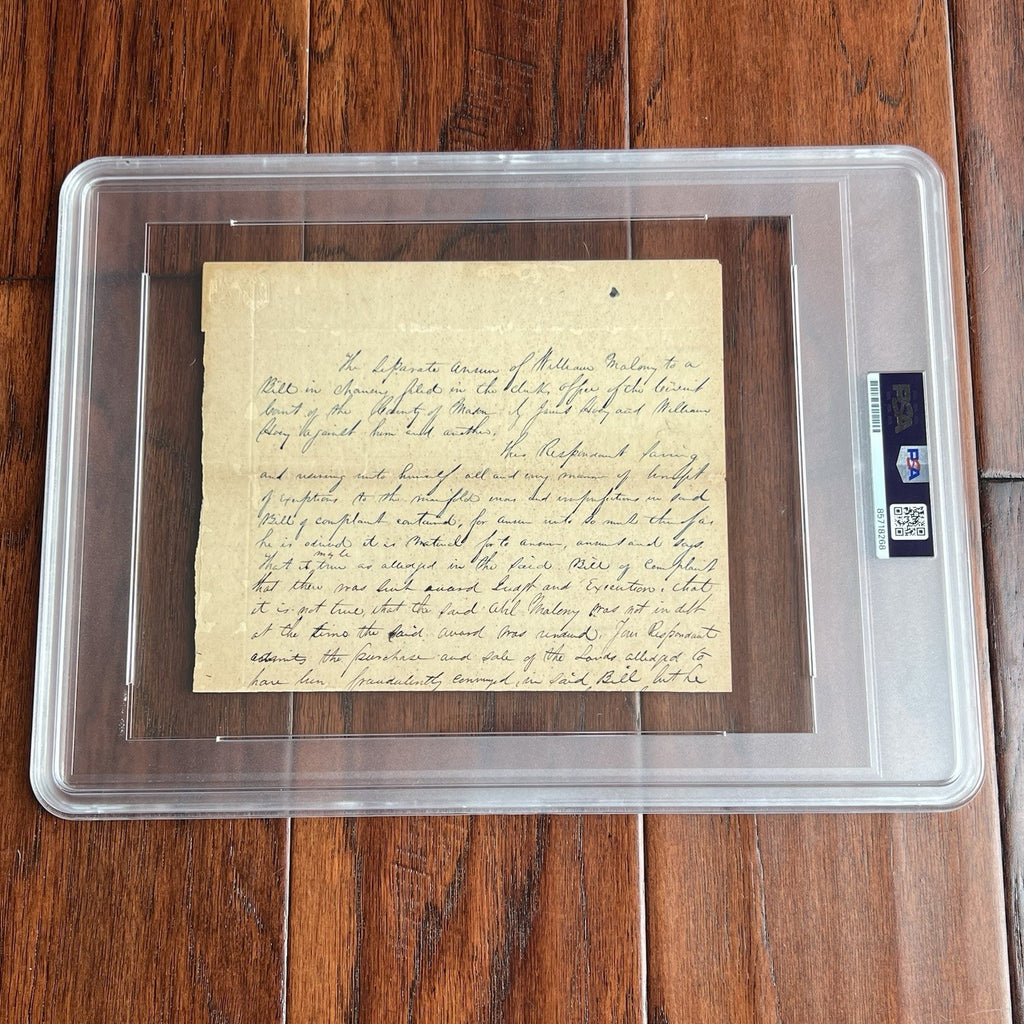 The Separate Answer of William Malony to a
Bill in Chancery filed in the clerks office of the Circuit
Court of the County of Mason by James Hoey and William
Hoey against him and another.
This Respondent Saving
and reserving unto himself all and every manner of benefit
of exceptions to the manifold errors and imperfections in said
Bill of complaint contained, for answer unto so much thereof as
he is advised it is material for to answer, answers and says
That it may be true as alledged in the said Bill of Complaint
that there was such award Judgt and Execution, that
it is not true that the said Malony was not in debt
at the time the said award was rendered. Your Respondent
admits the purchase and sale of the Lands alledged to
have been fraudulently conveyed, in said Bill but he
PSA
PSA
85718268